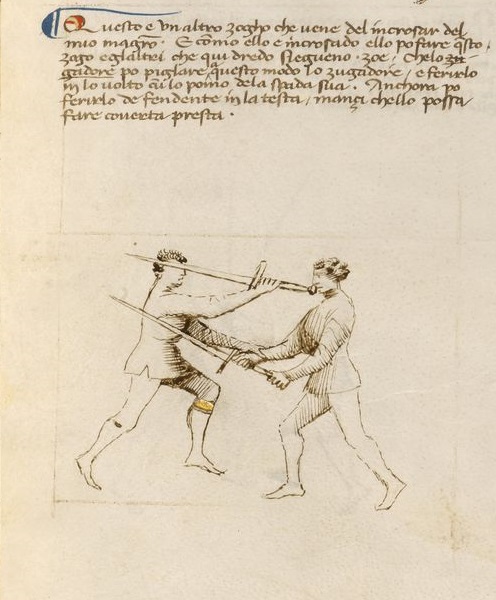 Questo e un altro zogho che vene del incrosar del
mio magro. E como ello e incrosado ello po fare q̃sto
zogo e gl altri che qui dredo segueno. zoe, Chelo zu
gadore po piglare a questo modo lo zugadore, e ferirlo
in lo volto cū lo pomo dela spada sua. Anchora po
ferirlo de fendente in la testa, mançi chello possa
fare coverta presta.